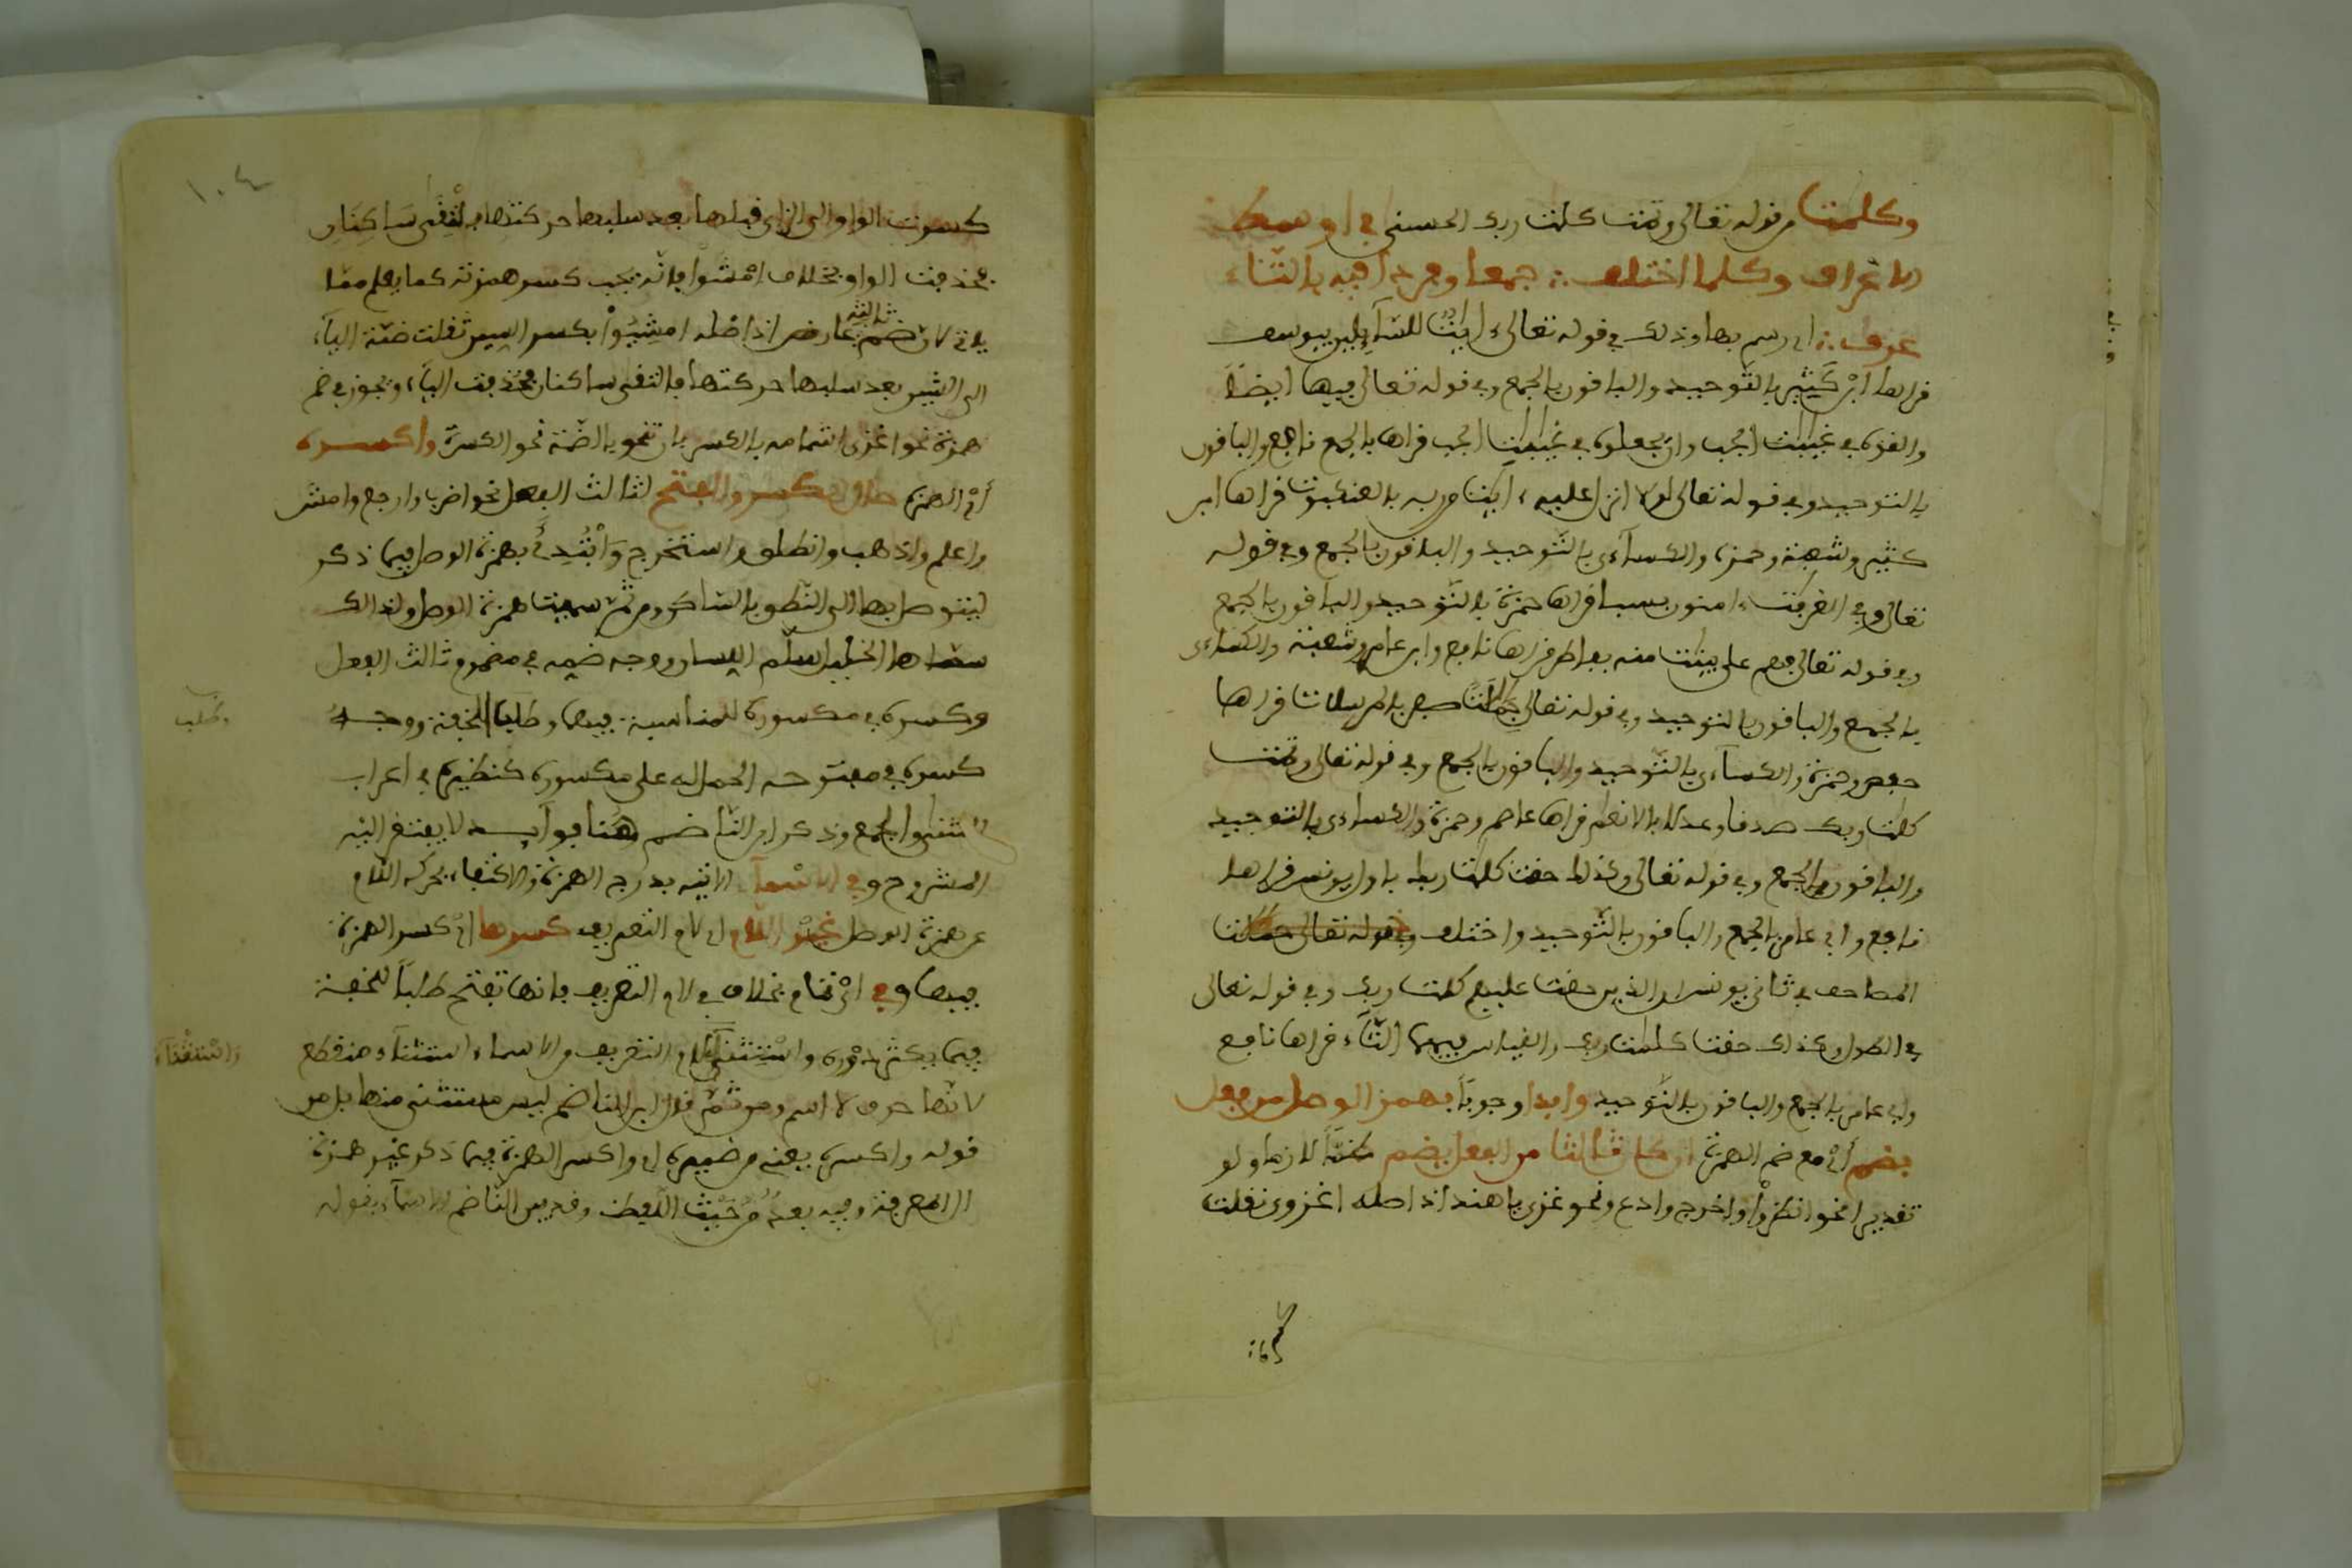 وكلمت من قوله تعالى وتمت كلمت ربك الحسنى في اوسط
الاعراف وكلما اختلف جمعا وفردا فيه بالتاء
عرف اي رسم بها وذلك في قوله تعالى ءايت للسايلين بيوسف
قراها ابن كثير بالتوحيد والباقون بالجمع وفي قوله تعالى فيها ايضا
والقوه في غيبت الجب وان يجعلوه في غيبت الجب قراها بالجمع نافع والباقون
بالتوحيد وفي قوله تعالى لولا انزل عليه ءايت من ربه بالعنكبوت قراها ابن
كثير وشعبة وحمزة والكساءي بالتوحيد والباقون بالجمع وفي قوله
تعالى وهم في الغرفت ءامنون بسبا قراها حمزة بالتوحيد والباقون بالجمع
وفي قوله تعالى فهم على بينت منه بفاطر قراها نافع وابن عامر وشعبة والكساءى
بالجمع والباقون بالتوحيد وفي قوله تعالى جملت صفر بالمرسلات قراها
حفص وحمزة والكساءى بالتوحيد والباقون بالجمع وفي قوله تعالى وتمت
كلمت ربك صدقا وعدلا بالانعام قراها عاصم وحمزة والكساءى بالتوحيد
والباقون بالجمع وفي قوله تعالى وكذلك حقت كلمت ربك باول يونس قراها
نافع وابن عامر بالجمع والباقون بالتوحيد واختلف
المصاحف في ثاني يونس ان الذين حقت عليهم كلمت ربك وفي قوله تعالى
في الطول وكذلك حقت كلمت ربك والقياس فيهما التاء قراها نافع
وابن عامر بالجمع والباقون بالتوحيد وابدا وجوبا بهمز الوصل من فعل
بضم أي مع ضم الهمزة ان كان ثالثا من الفعل يضم ضمّا لازما ولو
تقديرا نحو انظروا واخرج وادع ونحو غزى يا هند اذ اصله اغزوى نقلت
كسرت الواو الى الزاي قبلها بعد سلبها حركتها فالتقى ساكنان
فحذفت الواو بخلاف امشوا فانه يجب كسر همزته كما يعلم مما
ياتي لان ضم ثالثه عارض اذ اصله امشيوا بكسر الشين نقلت ضمة الياء
الى الشين بعد سلبها حركتها فالتقى ساكنان فحذفت الياء ويجوز في ضم
همزة نحو اغزى اشمامه بالكسر بان تنحو بالضمة نحو الكسرة واكسره
أي الهمز حال الكسر والفتح لثالث الفعل نحو اضرب وارجع وامش
واعلم واذهب وانطلق واستخرج وابتدئ بهمزة الوصل فيما ذكر
ليتوصل بها الى النطق بالساكن ومن ثم سميت همزة الوصل ولذالك
سماها الخليل سلم اللسان ووجه ضمه في مضموم ثالث الفعل
وكسره في مكسوره للمناسبة فيهما وطلبا للخفة ووجه
كسره في مفتوحه الحمل له على مكسوره كنظيره في اعراب
المثنى والجمع وذكر ابن الناظم هنا فوايد لا يفتقر اليه
المشروح وفي الاسماء الاتيه بدرج الهمزة والاكتفاء بحركة اللام
عن همزة الوصل غير اللام اي لام التعريف كسرها اي كسر الهمزة
فيها وفي اي تمام بخلاف لام التعريف فانها تفتح طلبا للخفة
فيما يكثر دوره واستثنى لام التعريف من الاسماء استثناء منقطع
لانها حرف لا اسم ومن ثم قال ابن الناظم ليس مستثنى منها بل من
قوله واكسره يعني من ضميره اي واكسر الهمزة فيما ذكر غير همزة
ال المعرفة وفيه بعد من حيث اللفظ وقد بين الناظم الاسماء بقوله
وطلب
واستثناء
١٠٤